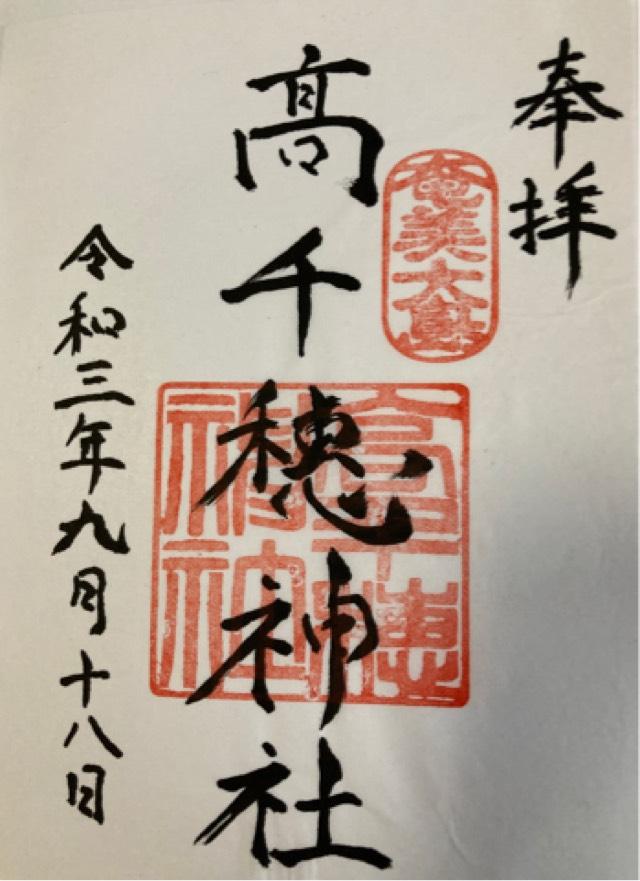 奉拝
奄美大島
髙千穂神社
高千穂神社
令和三年九月十八日